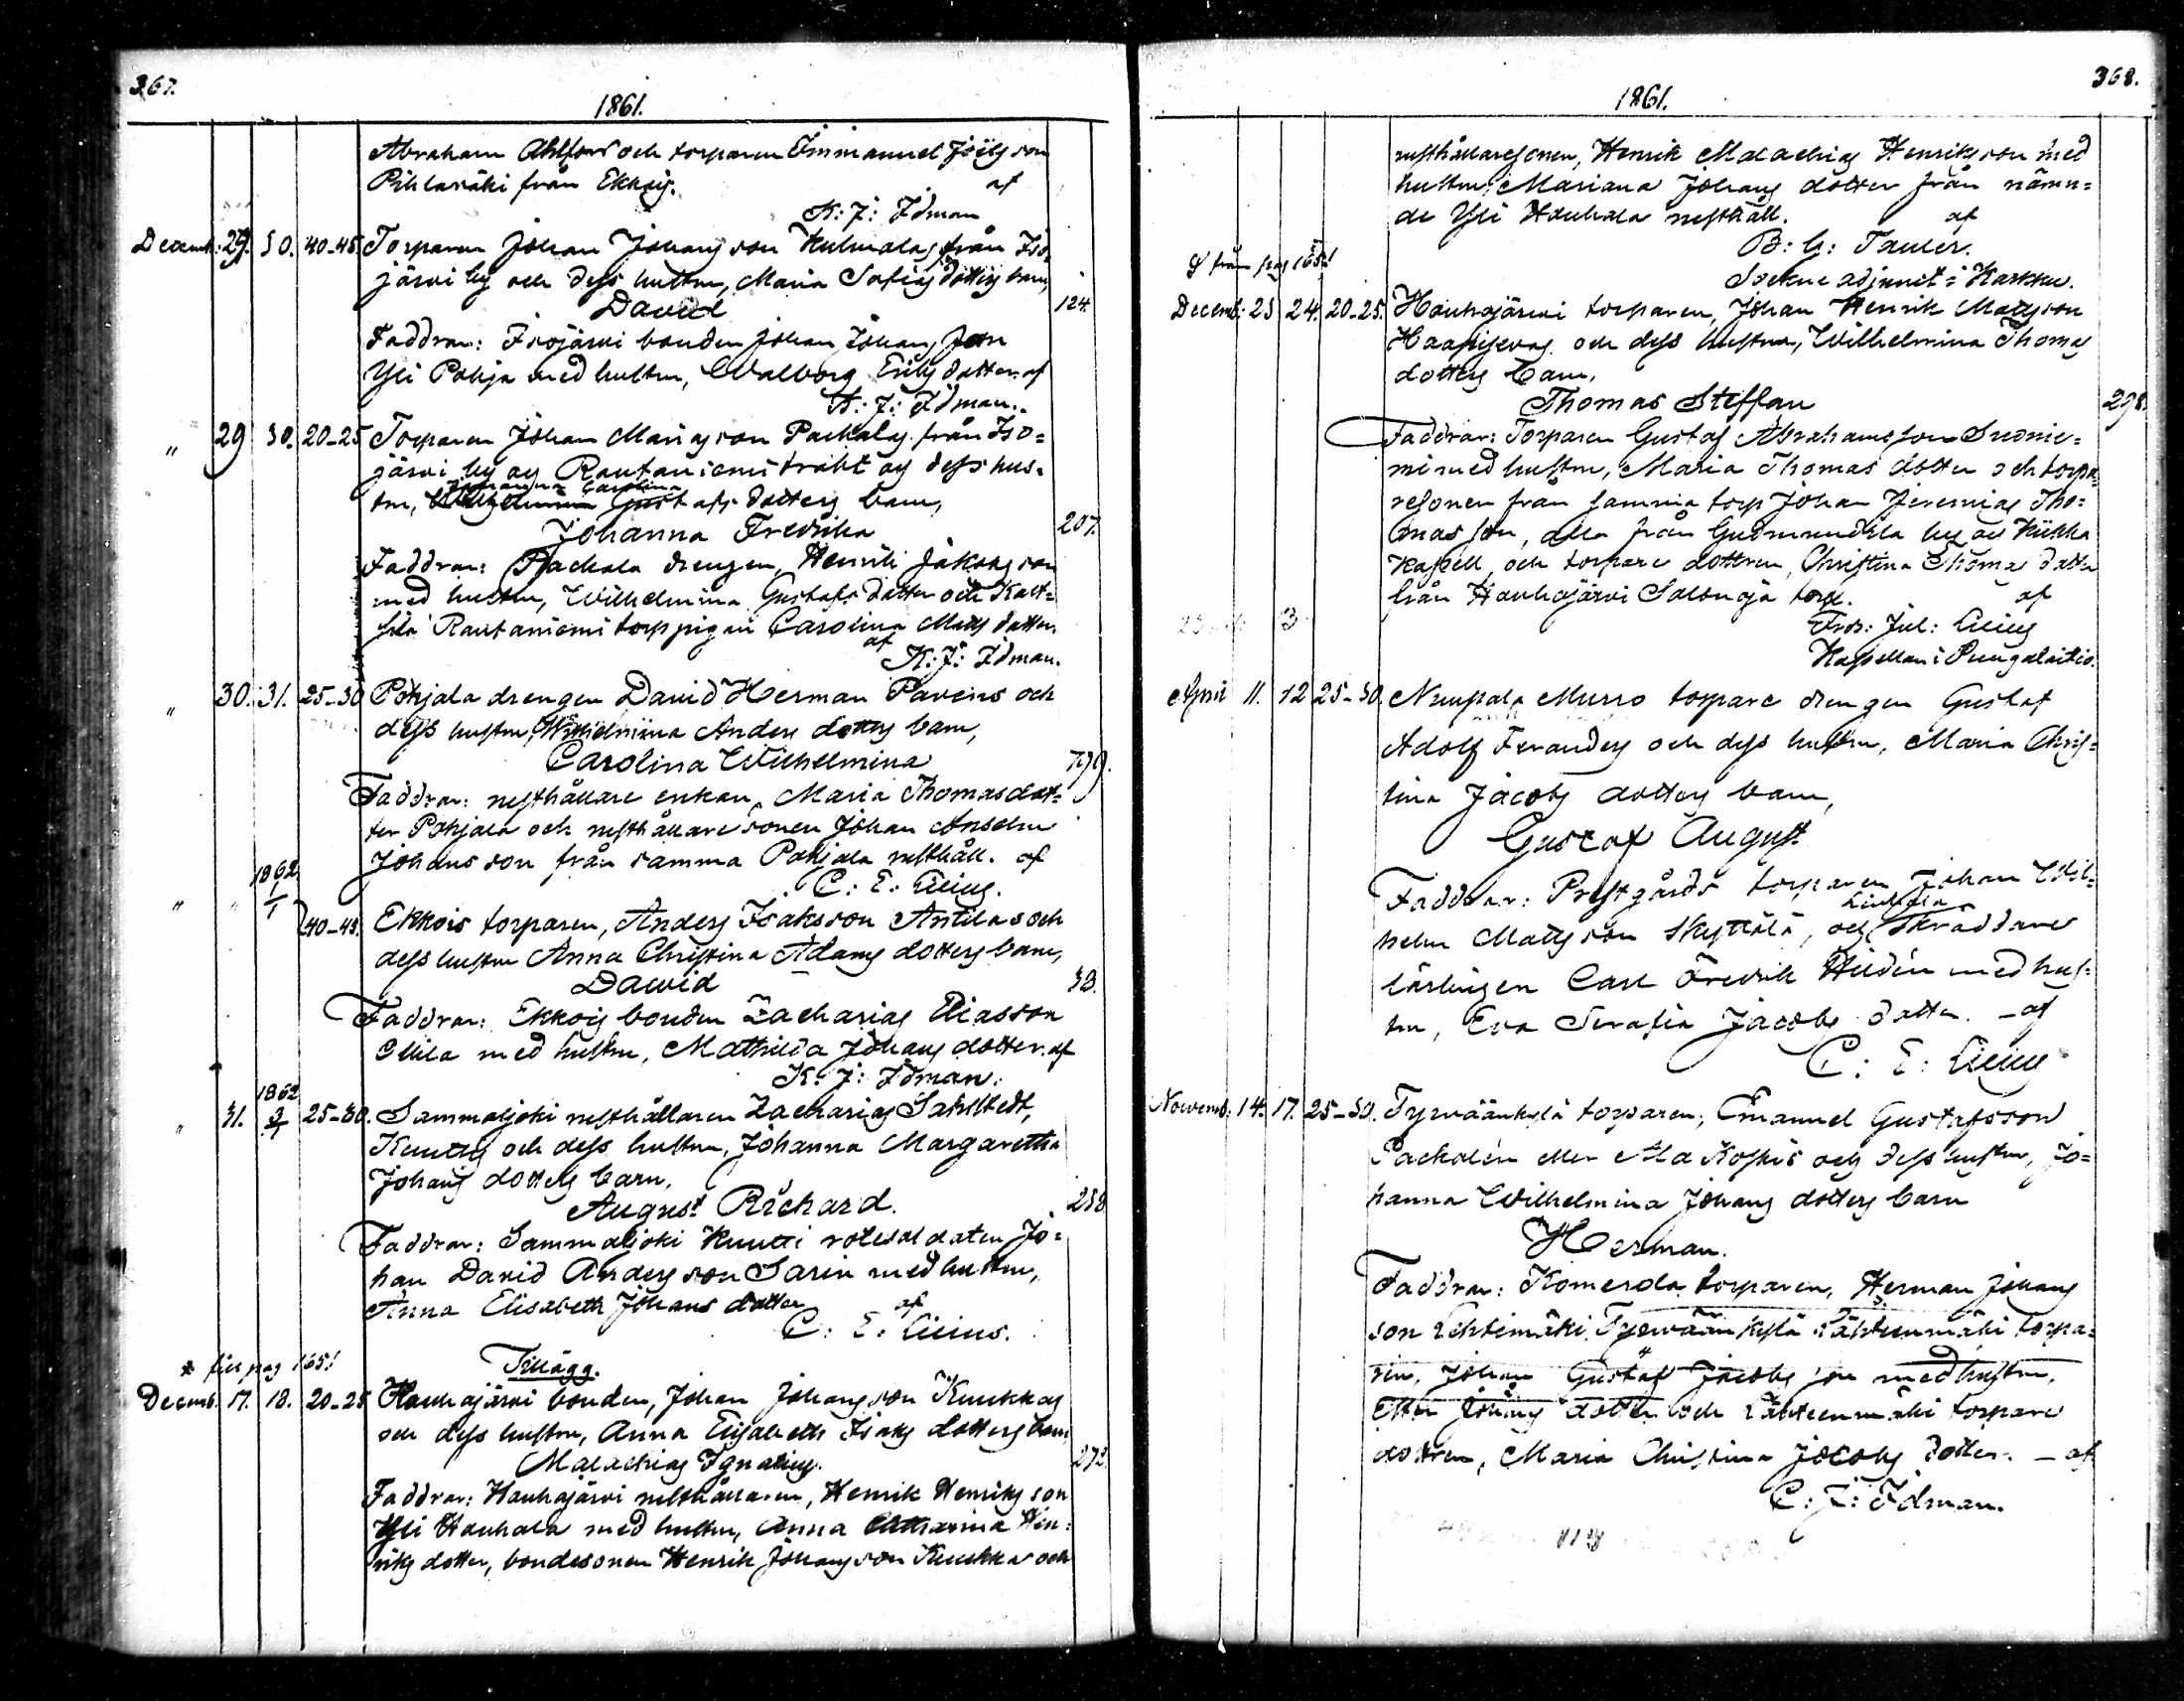 367.
1861.
Abraham Ahlfors och torparen Immanuel Joëls son
Pihlamäki från Ekkois. af
K: J: Idman
Decemb: 29. 30. 40-45. Torparen Johan Johans son Kulmalas från Iso-
järvi by och dess hustru, Maria Sofias dotters barn,
David 124.
Faddrar: Isojärvi bonden Johan Johans son
Yli Pohja med hustru, Walborg Eriks dotter. af
K: J: Idman.
" 29 30. 20-25 Torparen Johan Mariasson Packalas från Iso=
järvi by ag Rautaniemi trakt ag dess hus-
Johanna Carolina
tru, Wilhelmina Gustafs dotters barn,
Johanna Fredrika 207.
Faddrar: Packala drengen, Henrik Jakobs son
med hustru, Wilhelmina Gustafs dotter och Kalt=
sila Rautaniemi torppigan Carolina Matts dotter.
af
K: J: Idman.
" 30. 31. 25-30 Pohjala drengen David Herman Pavens och
dess hustru, Wilhelmina Anders dotters barn,
Carolina Wilhelmina 179.
Faddrar: rusthållare enkan, Maria Thomas dot=
ter Pohjala och rusthållare sonen Johan Anselm
Johans son från samma Pohjala rusthåll. af
C: E: Cilius.
1862
" " 1/1 40-45. Ekkois torparen, Anders Isaksson Antilas och
dess hustru Anna Christina Adams dotters barn,
Dawid 38.
Faddrar: Ekkois bonden Zacharias Eliasson
Ollila med hustru, Mathilda Johans dotter. af
K: J: Idman.
1862
" 31. 3/1 25-30. Sammaljoki rusthållaren Zacharias Sahlstedt,
Knuttis och dess hustru, Johanna Margaretha
Johans dotters barn,
August Richard. 238
Faddrar: Sammaljoki Knutti rotesoldaten Jo=
han David Anders son Sarin med hustru,
Anna Elisabeth Johans dotter af
C: E: Cilius.
* till pag 1651 Tillägg.
Decemb. 17. 18. 20-25 Houhajärvi bonden, Johan Johans son Kuukkas
och dess hustru, Anna Elisabeth Isaks dotters barn
Malachias Ignatius. 273.
Faddrar: Houhajärvi rusthållaren, Henrik Henriks son
Yli Houhala med hustru, Anna Catharina Hen=
riks dotter, bondesonen Henrik Johans son Kuukka och
368.
1861.
rusthållaresonen, Henrik Malachias Henriks son med
hustru, Mariana Johans dotter från nämn=
de Yli Houhala rusthåll. af
B: G: Tauler.
Sockne adjunct i Karkku.
från pag 1651
Decemb: 23 24. 20-25. Houhajärvi torparen, Johan Henrik Matts son
och dess hustru, Wilhelmina Thomas
dotters barn,
Thomas Steffan 298
Faddrar: Torparen Gustaf Abrahams son Suonie=
mi med hustru, Maria Thomas dotter och torpa
resonen från samma torp Johan Jeremias Tho=
mas son, alla från Gudmundila by af Kiikka
Kapell, och torpare dottren, Christina Thomas dotter
från Houhajärvi torp. af
Frdr: Jul: Cilius
Kapellan i Pungalaitio.
April 11. 12 25-30. Nuupala Murro torpare drengen Gustaf
Adolf Feranders och dess hustru, Maria Chris=
tina Jacobs dotters barn,
Gustaf August
Faddrar: Prestgårds torparen Johan Wil=
helm Matts son Skyttälä, och skräddare
lärlingen Carl Fredrik Hildén med hus=
tru, Eva Serafia Jacobs dotter. - af
C: E: Cilius
Novemb: 14. 17. 25-30. Tyrväänkylä torparen, Emanuel Gustafsson
Packalén eller Ala Koskis och dess hustru, Jo=
hanna Wilhelmina Johans dotters barn
Herman.
Faddrar: Komerola torparen, Herman Johans
son Lehtimäki, Tyrväänkylä Lähteenmäki torpa=
ren, Johan Gustaf Jacobs son med hustru,
Johans dotter och Lähteenmäki torpare
dottren, Maria Christina Jacobs dotter. - af
C: J: Idman.